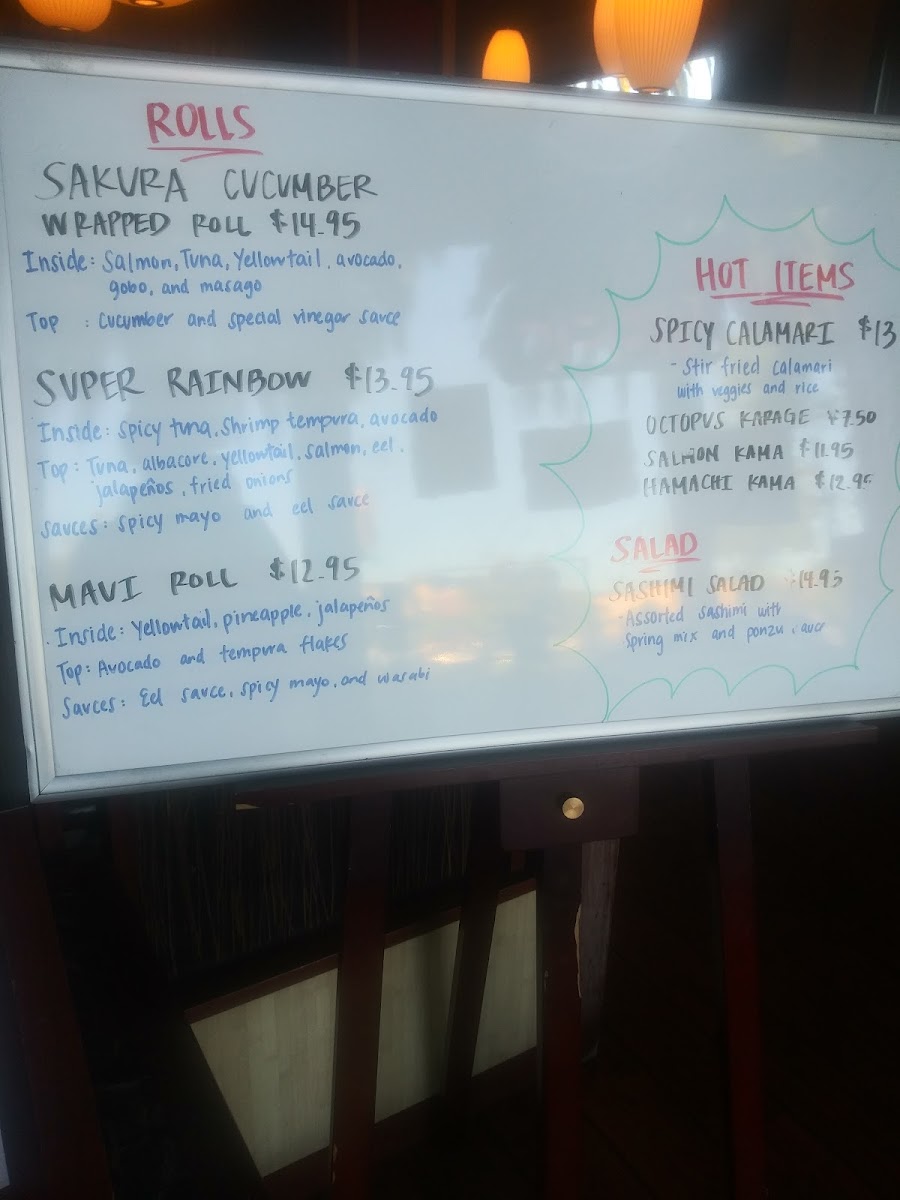 ROLLS
SAKURA CUCUMBER
WRAPPED ROLL $14.95
Inside: Salmon, Tuna, Yellowtail, avocado,
gobo, and masago
Top : Cucumber and special vinegar sauce
SUPER RAINBOW $13.95
Inside: Spicy tuna, Shrimp tempura, avocado
Top: Tuna, albacore, yellowtail, salmon, eel,
jalapeños, fried onions
Sauces: Spicy mayo and eel sauce
MAUI ROLL $12.95
Inside: Yellowtail, pineapple, jalapeños
Top: Avocado and tempura flakes
Sauces: Eel sauce, spicy mayo, and wasabi
HOT ITEMS
SPICY CALAMARI $13
- Stir fried calamari
with veggies and rice
OCTOPUS KARAGE $7.50
SALMON KAMA $11.95
HAMACHI KAMA $12.95
SALAD
SASHIMI SALAD $14.95
- Assorted sashimi with
Spring mix and ponzu sauce